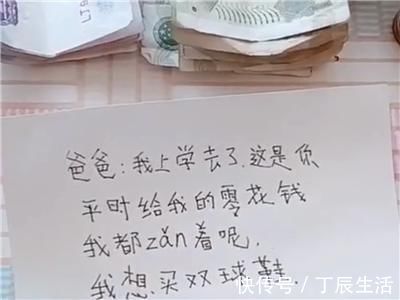 爸爸:我上学去了.这是你
平时给我的零花钱
我都zǎn着呢,
我想买双球鞋.
快传号/丁辰生活